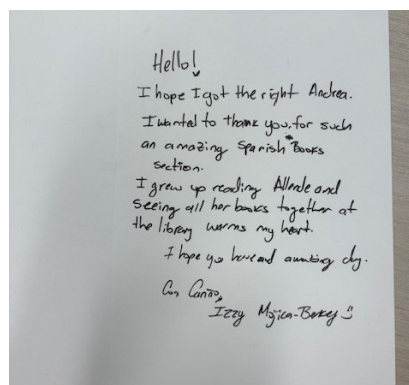 Hello!
I hope I got the right Andrea.
I wanted to thank you, for such
an amazing Spanish Books
section.
I grew up reading Allende and
seeing all her books together at
the library warms my heart.
I hope you have and amazing day.
Con Cariño,
Izzy Mojica-Berkey :)